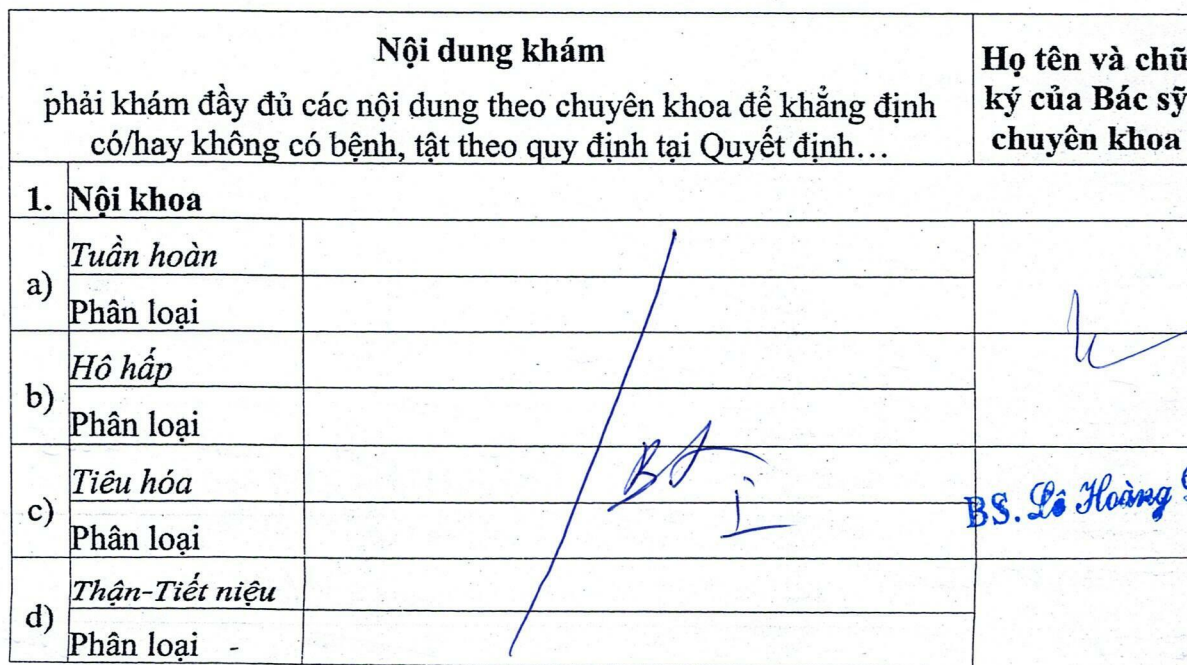 Nội dung khám
phải khám đầy đủ các nội dung theo chuyên khoa để khẳng định
có/hay không có bệnh, tật theo quy định tại Quyết định…
Họ tên và chữ
ký của Bác sỹ
chuyên khoa
1. Nội khoa
a) Tuần hoàn
Phân loại
b) Hô hấp
Phân loại
c) Tiêu hóa
Phân loại
d) Thận-Tiết niệu
Phân loại -
BT
I
BS. Lê Hoàng